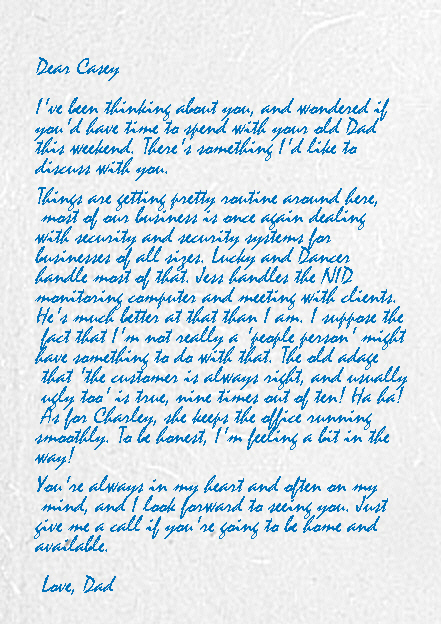 Dear Casey
I've been thinking about you, and wondered if
you'd have time to spend with your old Dad
this weekend. There's something I'd like to
discuss with you.
Things are getting pretty routine around here,
most of our business is once again dealing
with security and security systems for
businesses of all sizes. Lucky and Dancer
handle most of that. Jess handles the NID
monitoring computer and meeting with clients.
He's much better at that than I am. I suppose the
fact that I'm not really a 'people person' might
have something to do with that. The old adage
that 'the customer is always right, and usually
ugly too' is true, nine times out of ten! Ha ha!
As for Charley, she keeps the office running
smoothly. To be honest, I'm feeling a bit in the
way!
You're always in my heart and often on my
mind, and I look forward to seeing you. Just
give me a call if you're going to be home and
available.
Love, Dad